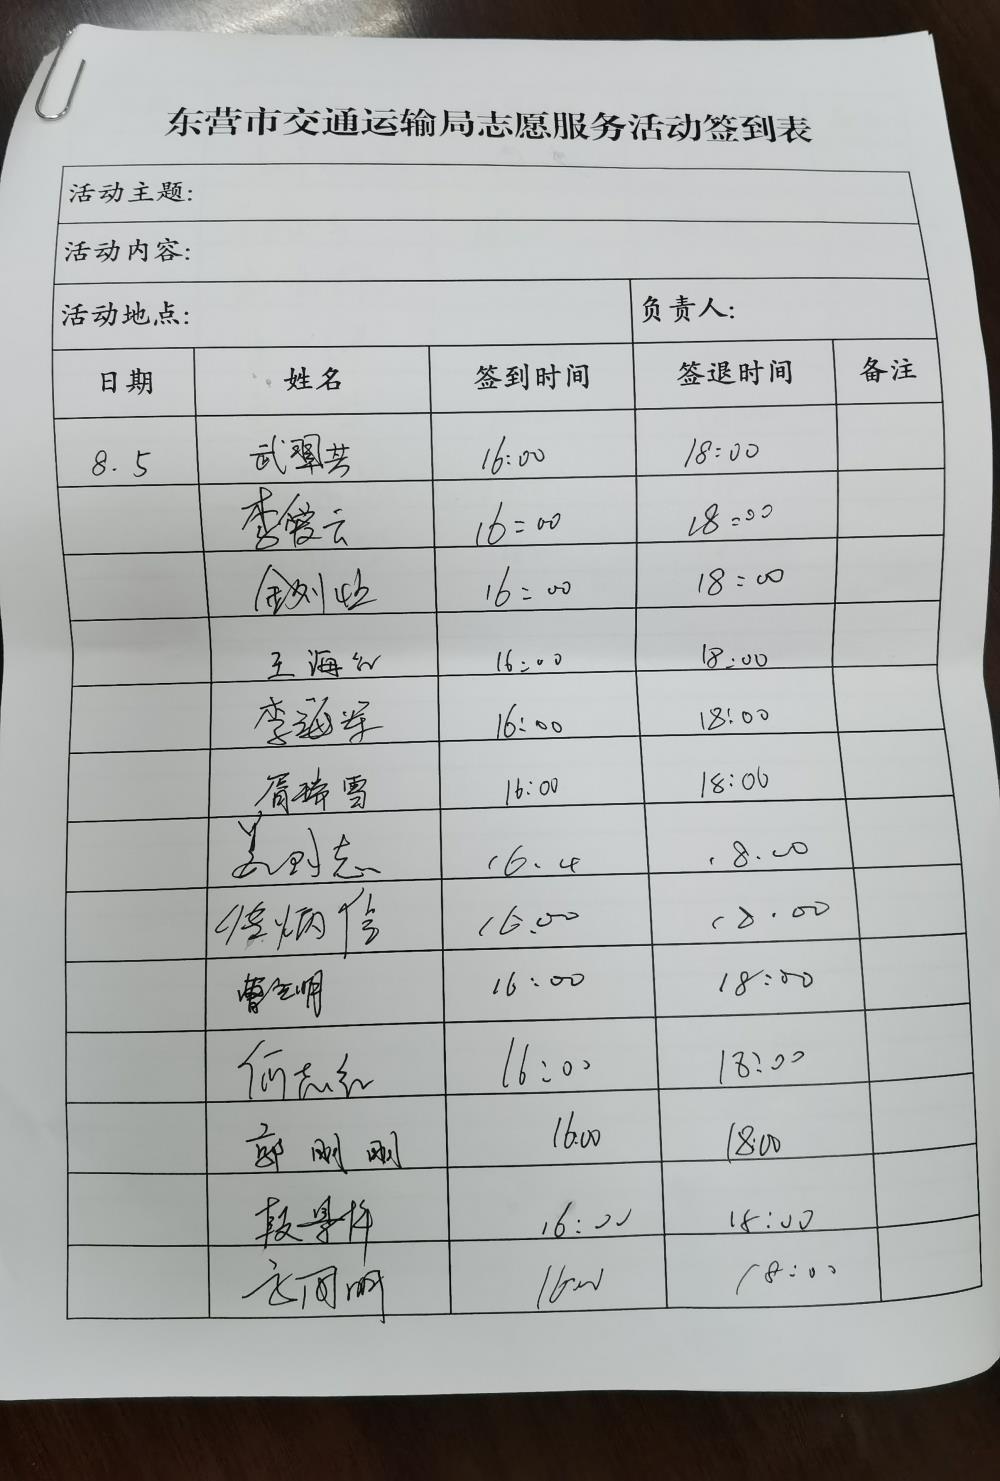 东营市交通运输局志愿服务活动签到表
活动主题:
活动内容:
活动地点: 负责人:
日期 姓名 签到时间 签退时间 备注
8.5 武翠芸 16:00 18:00
李爱云 16:00 18:00
16:00 18:00
王海红 16:00 18:00
李海军 16:00 18:00
胥瑞雪 16:00 18:00
16.00 18.00
炳信 16:00 18.00
曹 明 16:00 18:00
何志红 16:00 18:00
郭刚刚 16:00 18:00
段景梓 16:00 18:00
明 16:00 18:00